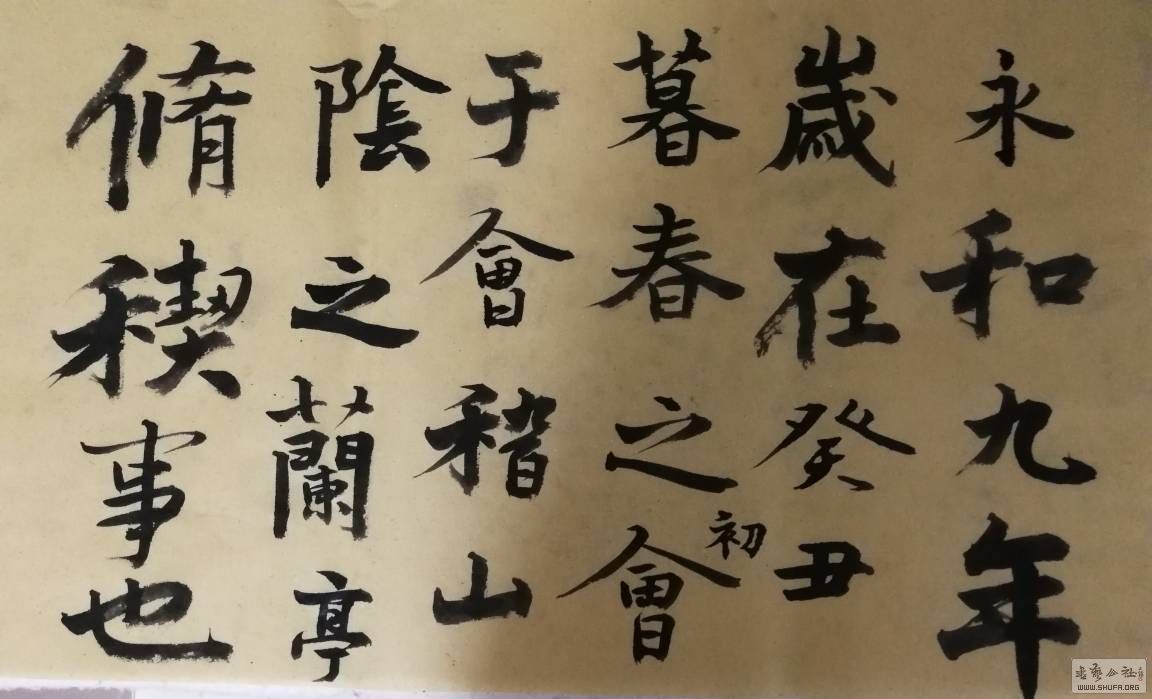 永和九年
歲在癸丑
暮春之初會
于會稽山
陰之蘭亭
脩稧事也
书艺公社
WWW.SHUFA.ORG